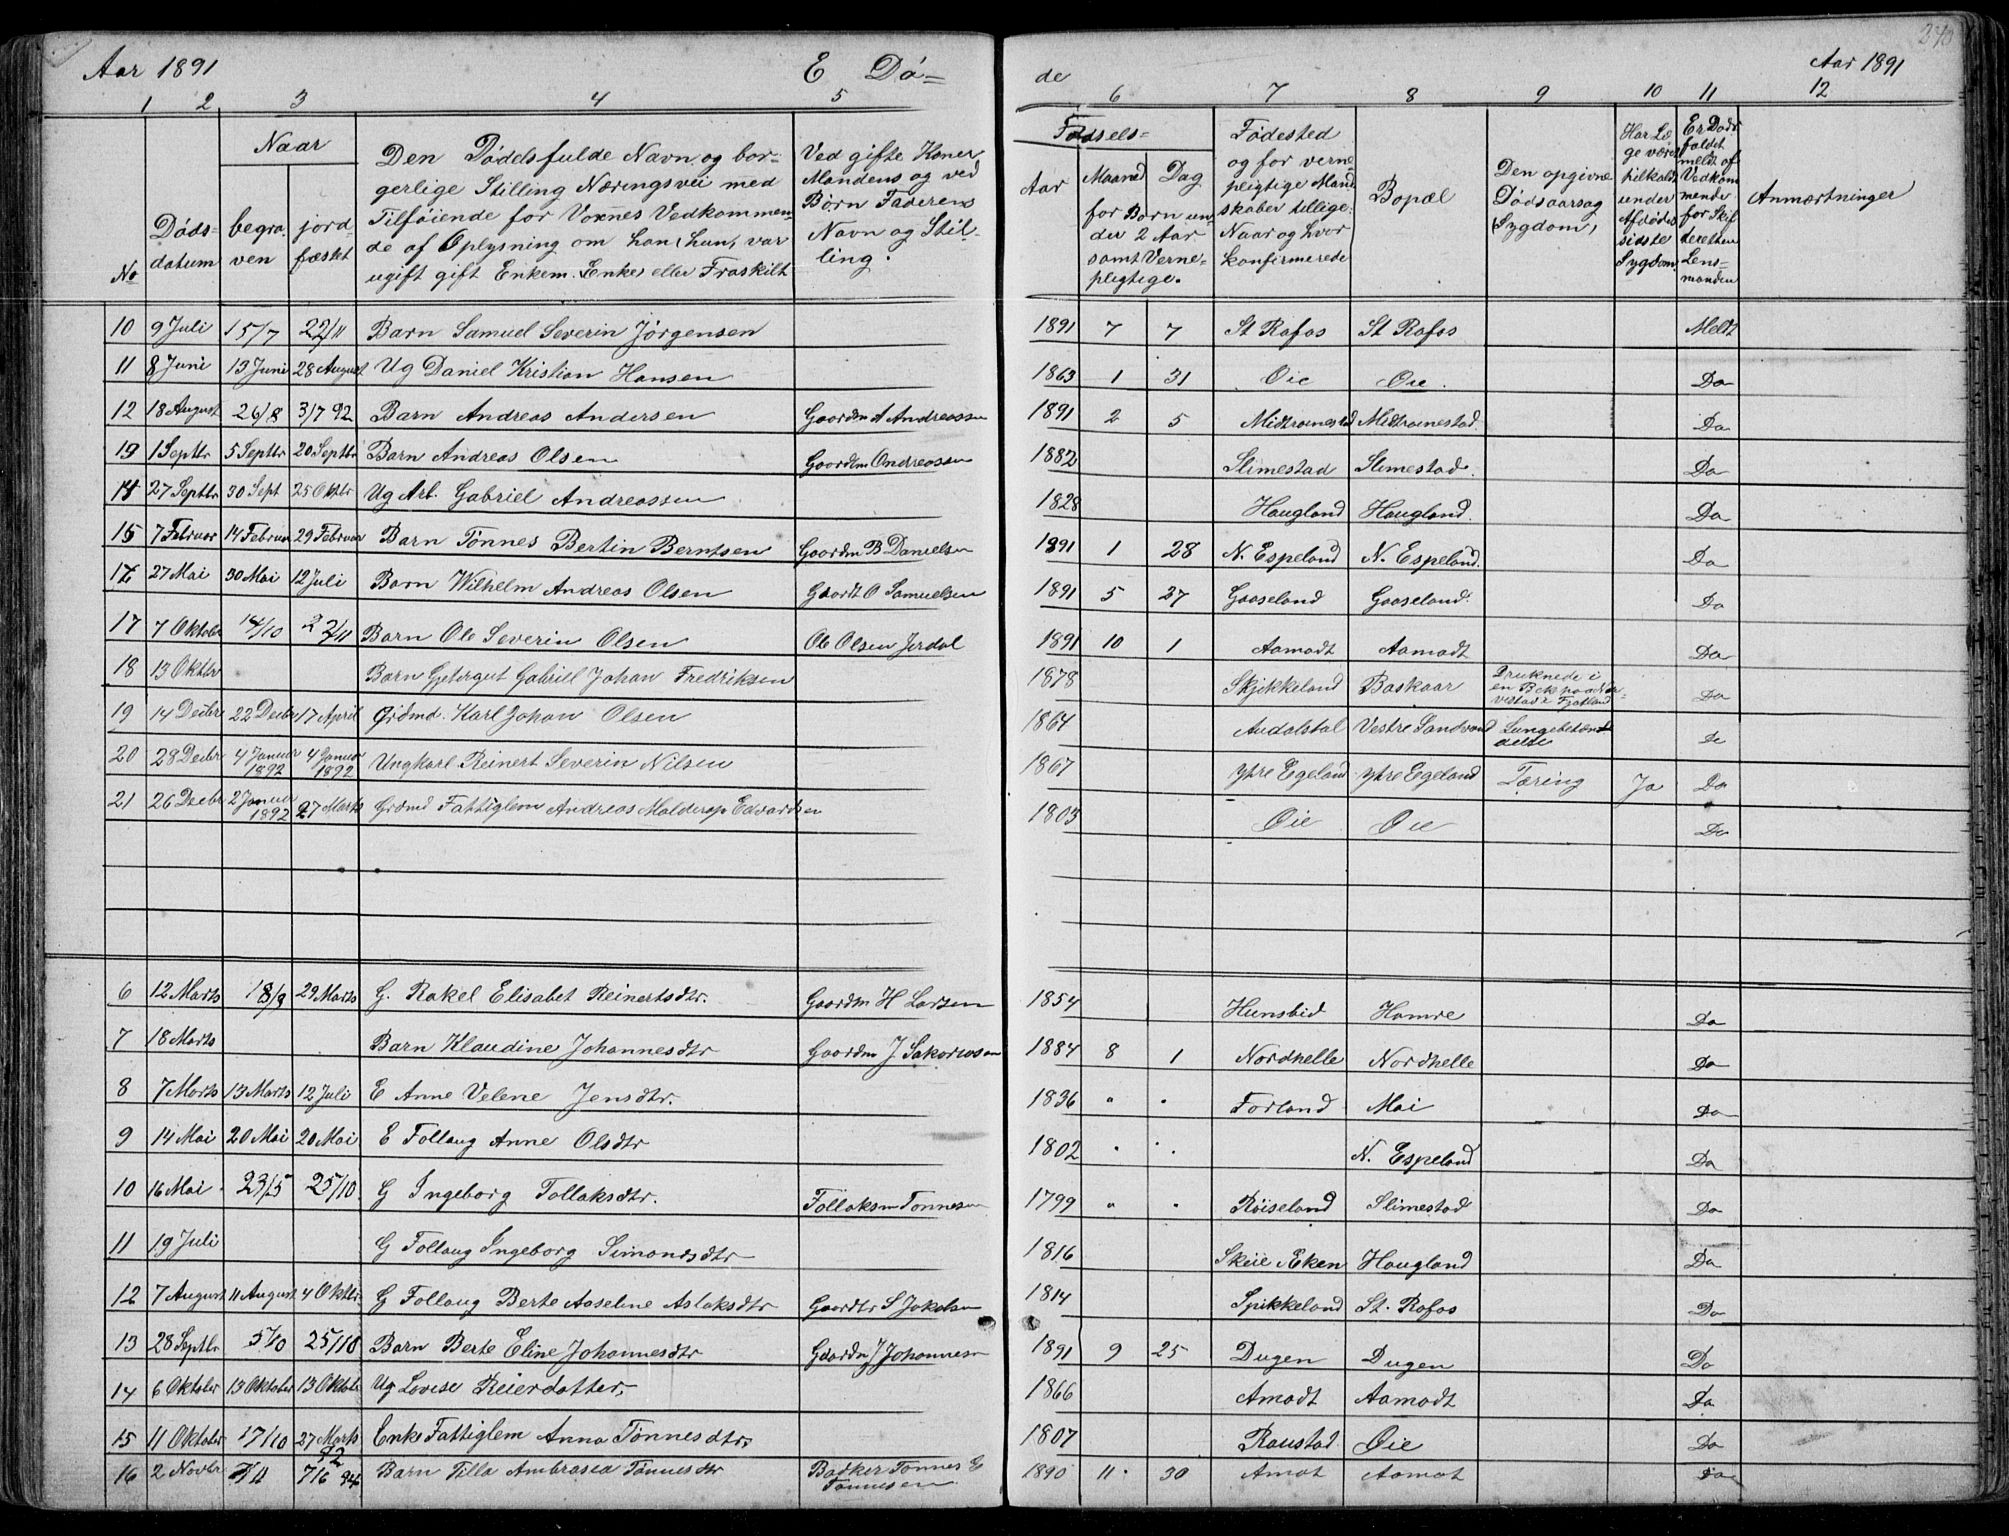 Aar 1891 E Dö= de Aar 1891 270
1 2 3 4 5 6 7 8 9 10 11 12
No
Dödsdatum
Naar
begraven
jordfæstet
Den Dödes fulde Navn og bor-
gerlige Stilling Næringsvei med
Tilføiende for Voxnes Vedkommen-
de af Oplysning om han (hun) var
ugift gift Enkem. (Enke) eller Fraskilt
Ved gifte Koner
Mandens og ved
Børn Faderens
Navn og Stil-
ling.
Fødsels=
Aar
Maaned Dag
for Børn un-
der 2 Aar
samt Verne-
pligtige.
Fødested
og for verne
pligtige Mand
skaber tillige
Naar og hvor
konfirmerede
Bopæl
Den opgivne
Dødsaarsag
(Sygdom)
Har Læ
ge været
tilkaldt
under
Afdødes
sidste
Sygdom.
Er Døds
faldet
meldt af
Vedkom
mende
for Skif
teretten
Lens=
manden
Anmærkninger
10 9 Juli 15/7 22/11 Barn Samuel Severin Jörgensen 1891 7 7 St Rafos St Rafos Meldt
11 8 Juni 13 Juni 28 August Ug Daniel Kristian Hansen 1863 1 31 Øie Øie Do
12 18 August 26/8 3/7 92 Barn Andreas Andersen Gaardm A Andreassen 1891 2 5 Midtromestad Midtromestad Do
19 1 Septbr 5 Septbr 20 Septbr Barn Andreas Olsen Gaardm Andreassen 1882 Slimestad Slimestad Do
14 27 Septbr 30 Sept 25 Oktbr Ug Arb. Gabriel Andreassen 1828 Haugland Haugland Do
15 7 Februar 14 Februar 29 Februar Barn Tönnes Bertin Berntsen Gaardm B Danielsen 1891 1 28 N. Espeland N. Espeland Do
27 Mai 30 Mai 12 Juli Barn Wilhelm Andreas Olsen Gaardt O Samuelsen 1891 5 27 Gaaseland Gaaseland Do
17 7 Oktober 14/10 22/11 Barn Ole Severin Olsen Ole Olsen Jerdal 1891 10 1 Aamodt Aamodt Do
18 13 Oktbr Barn Gjetergut Gabriel Johan Fredriksen 1878 Skjekkeland Baskaar Druknede i
en Bek paa Ner-
vestad i Fjotland Do
19 14 Decbr 22 Decbr 17 April Grdmd. Karl Johan Olsen 1864 Audalstal Vestre Sandvand Lungebetæn
delse De
20 28 Decbr 4 Januar
1892 4 Januar
1892 Ungkarl Reinert Severin Nilsen 1867 Ytre Egeland Ytre Egeland Tæring Ja Do
21 26 Decbr 2 Januar
1892 27 Marts Grdmd Fattiglem Andreas Malderop Edvardsen 1803 Øie Øie Do
6 12 Marts 18/3 29 Marts G. Rakel Elisabet Reinertsdtr. Gaardm H Larsen 1854 Hunsbid Hamre Do
7 18 Marts Barn Klaudine Johannesdtr Gaardm J Sakariasen 1884 8 1 Nordhelle Nordhelle Do
8 7 Marts 13 Marts 12 Juli E Anne Velene Jensdtr. 1836 " " Forland Moi Do
9 14 Mai 20 Mai 20 Mai E Follaug Anne Olsdtr 1802 " " N. Espeland Do
10 16 Mai 23/5 25/10 G Ingeborg Tollaksdtr. Follaksm Tønnesen 1799 " " Röiseland Slimestad Do
11 19 Juli G Follaug Ingeborg Simonsdtr 1816 Skeie Æken Haugland Do
12 7 August 11 August 4 Oktbr G Follaug Berte Aaseline Aslaksdtr Gaardbr S Jakobsen 1814 Spikkeland St. Rafos Do
13 28 Septbr 5/10 25/10 Barn Berte Eline Johannesdtr Gaardm J Johannesen 1891 9 25 Dugen Dugen Do
14 6 Oktober 13 Oktober 13 Oktober Ug Lovise Reierdatter, 1866 Amodt Aamodt Do
15 11 Oktober 17/10 27 Marts
92 Enke Fattiglem Anna Tönnesdtr. 1807 Raustad Øie Do
16 2 Novbr 7/11 7/6 94 Barn Tilla Ambrosea Tönnesdtr Bødker Tonnes G
Tönnesen 1890 11 30 Amot Aamot Do